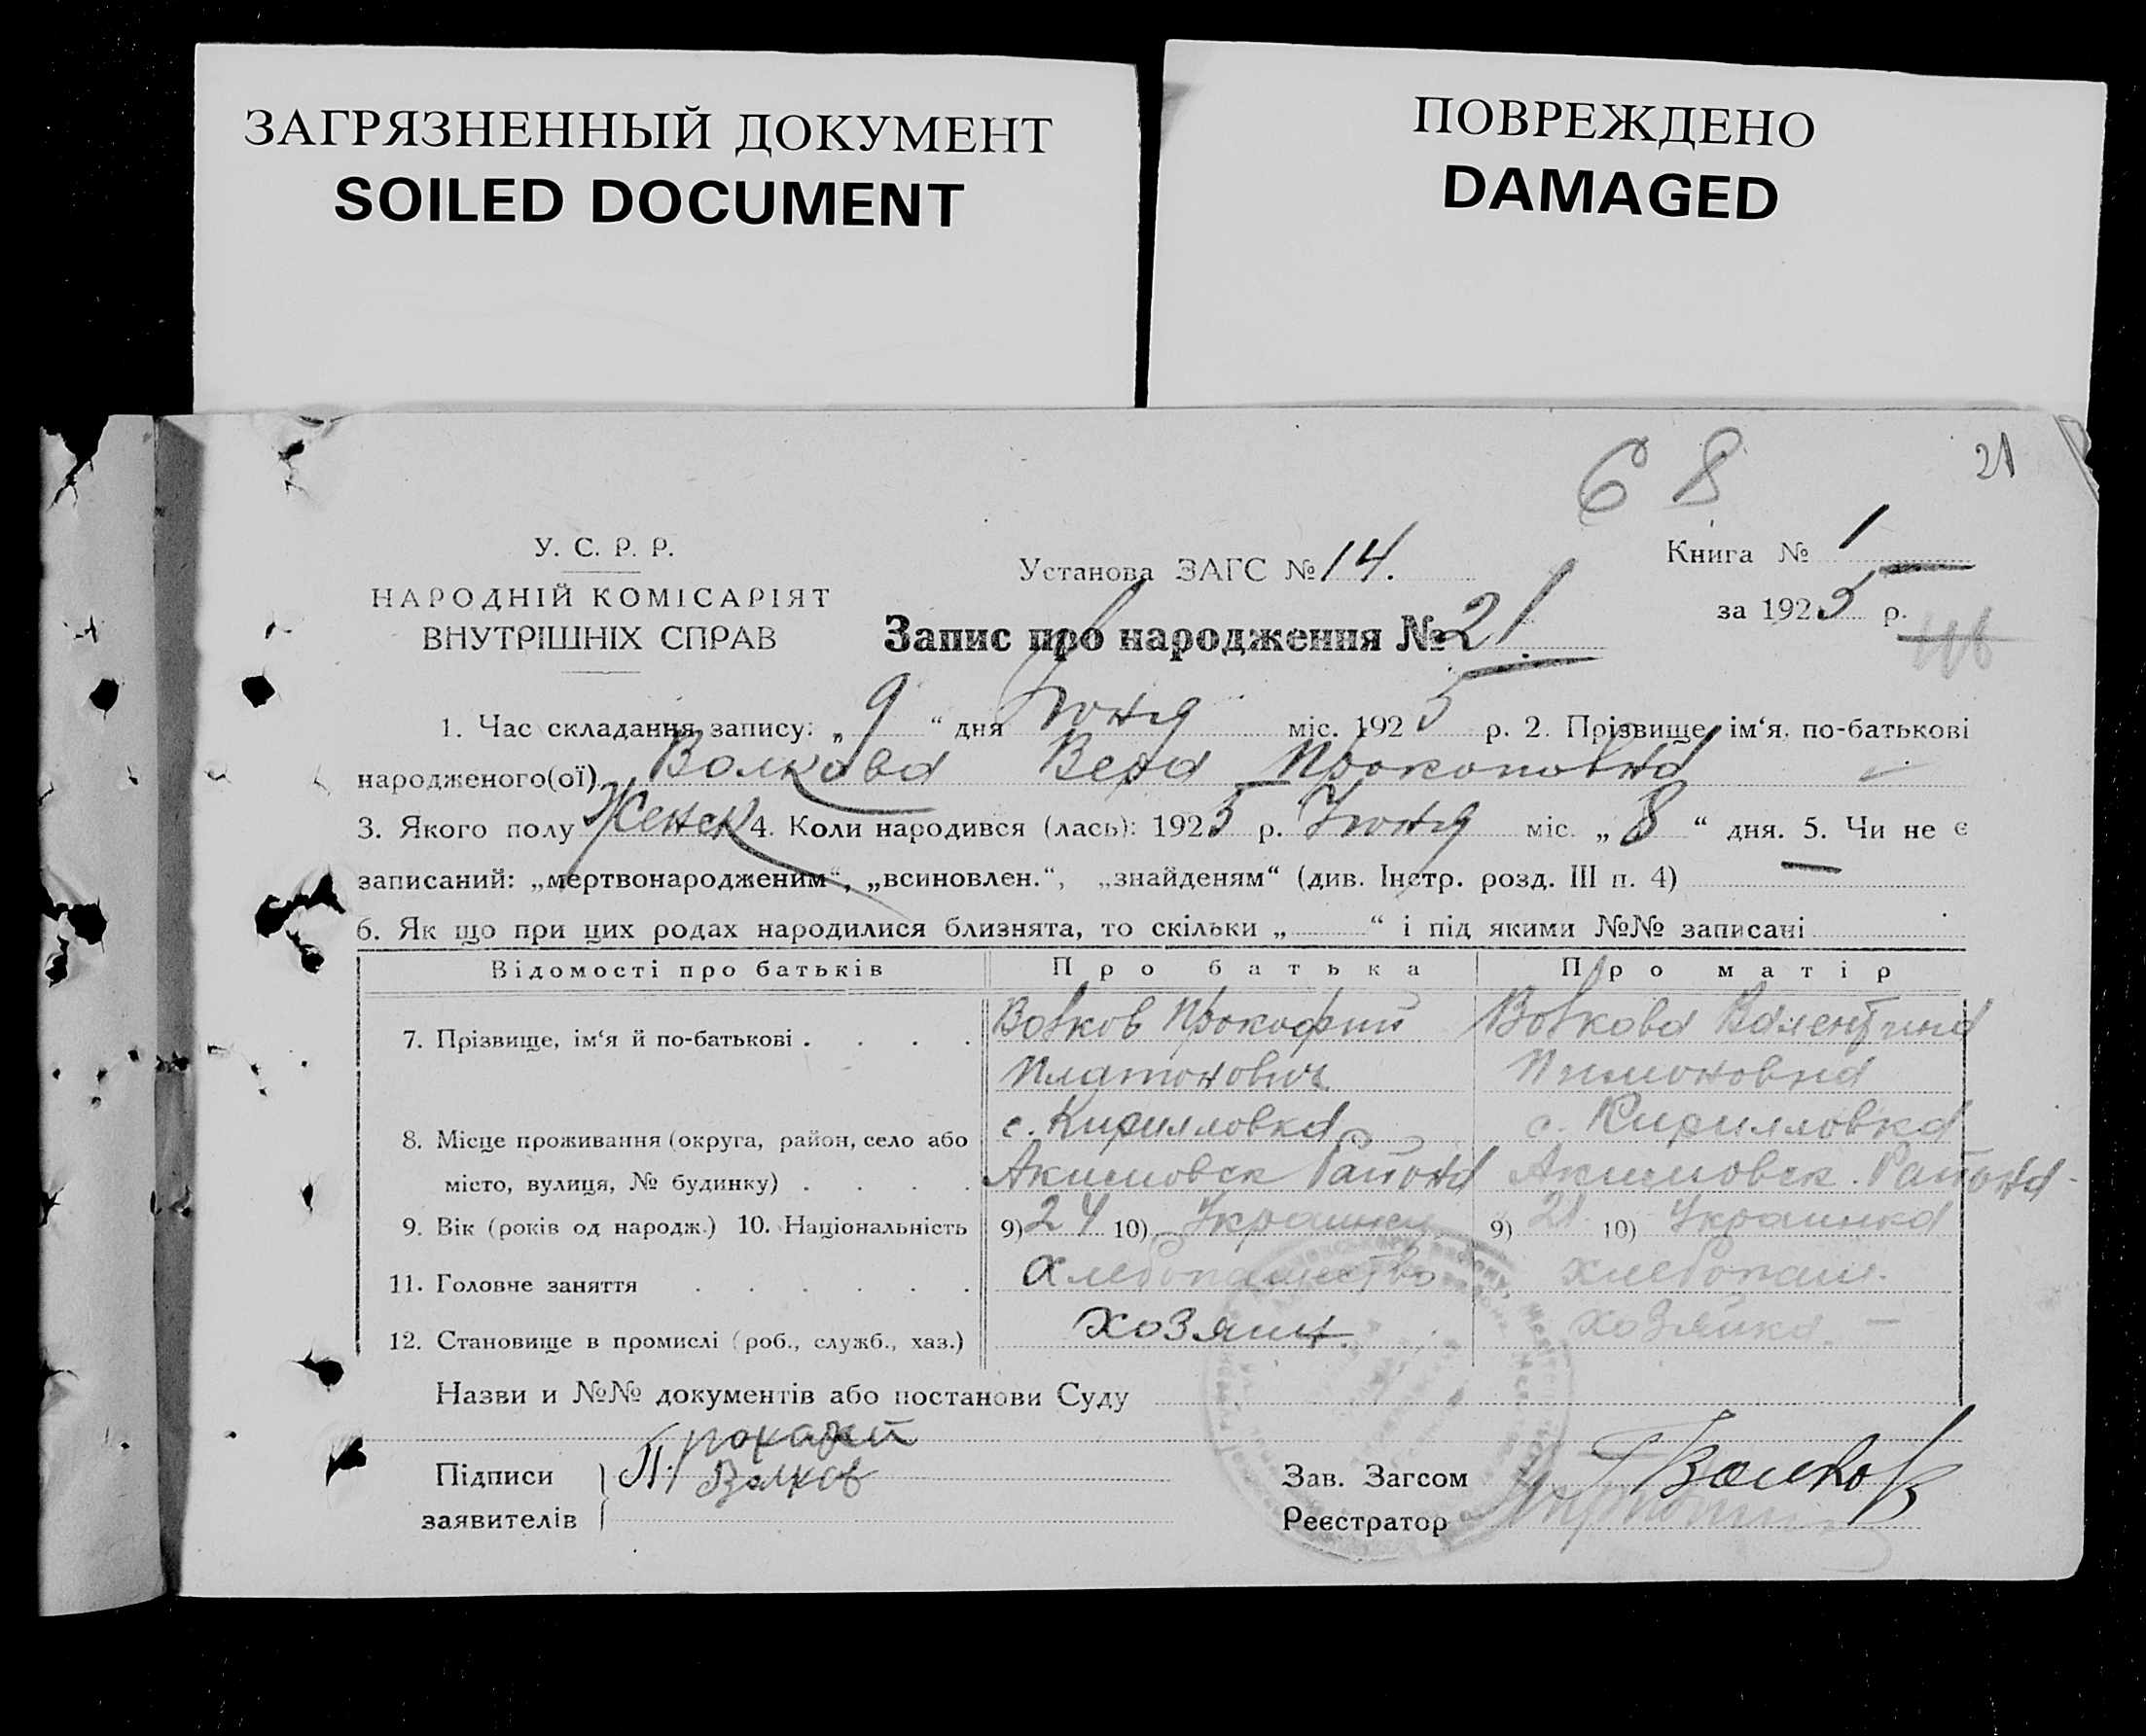 ЗАГРЯЗНЕННЫЙ ДОКУМЕНТ
SOILED DOCUMENT
ПОВРЕЖДЕНО
DAMAGED
68
21
У. С. Р. Р.
НАРОДНІЙ КОМІСАРІЯТ
ВНУТРІШНІХ СПРАВ
Установа ЗАГС № 14.
Запис про народження № 21.
Книга № 1
за 1925 р.
1. Час складання запису: „9“ дня Июня міс. 1925 р. 2. Прізвище, ім‘я, по-батькові
народженого(ої) Волкова Вера Прокоповна
3. Якого полу Женск 4. Коли народився (лась): 1925 р. Июня міс. „8“ дня. 5. Чи не є
записаний: „мертвонародженим“, „всиновлен.“, „знайденям“ (див. Інстр. розд. III п. 4) —
6. Як що при цих родах народилися близнята, то скільки „ “ і під якими №№ записані
Відомості про батьків Про батька Про матір
7. Прізвище, ім‘я й по-батькові . . . . Волков Прокофий Волкова Валентина
Платонович Пимоновна
с. Кирилловка с. Кирилловка
8. Місце проживання (округа, район, село або
місто, вулиця, № будинку) . . . . Акимовск Района Акимовск. Района
9. Вік (років од народж.) 10. Національність 9) 24 10) Украинец 9) 21 10) Украинка
11. Головне заняття . . . . . . Хлебопашество хлебопаш.
12. Становище в промислі (роб., служб., хаз.) хозяин. хозяйка. —
Назви и №№ документів або постанови Суду
Підписи
заявителів
П. Волков
Зав. Загсом Волков
Реєстратор